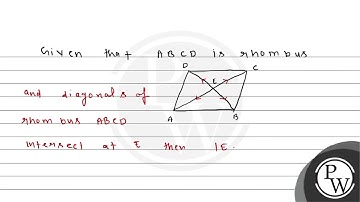 Given that ABCD is rhombus
D
C
E
and diagonals of
rhombus ABCD
A
B
intersect at E then LE.
PW
PHYSICS WALLAH